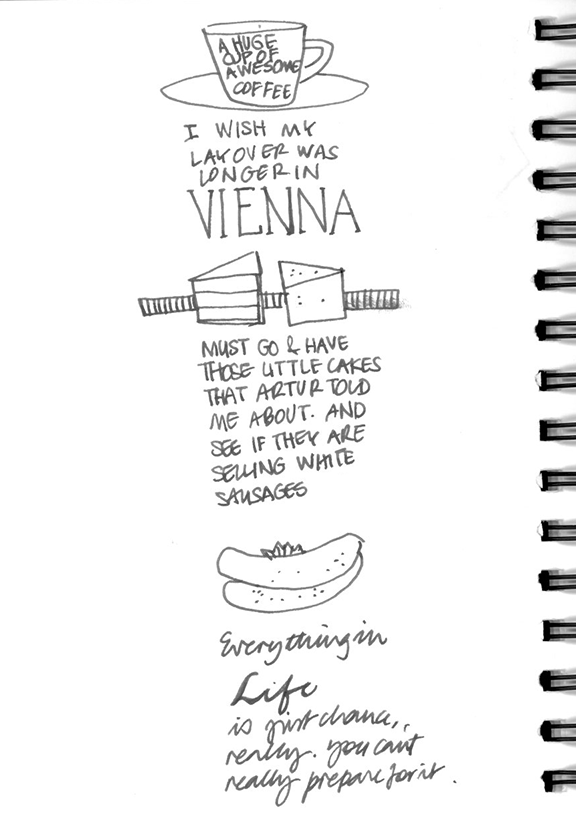 A HUGE
CUP OF
AWESOME
COFFEE
I WISH MY
LAYOVER WAS
LONGER IN
VIENNA
MUST GO & HAVE
THOSE LITTLE CAKES
THAT ARTUR TOLD
ME ABOUT. AND
SEE IF THEY ARE
SELLING WHITE
SAUSAGES
Everything in
Life
is just chance,
really. you can't
really prepare for it.